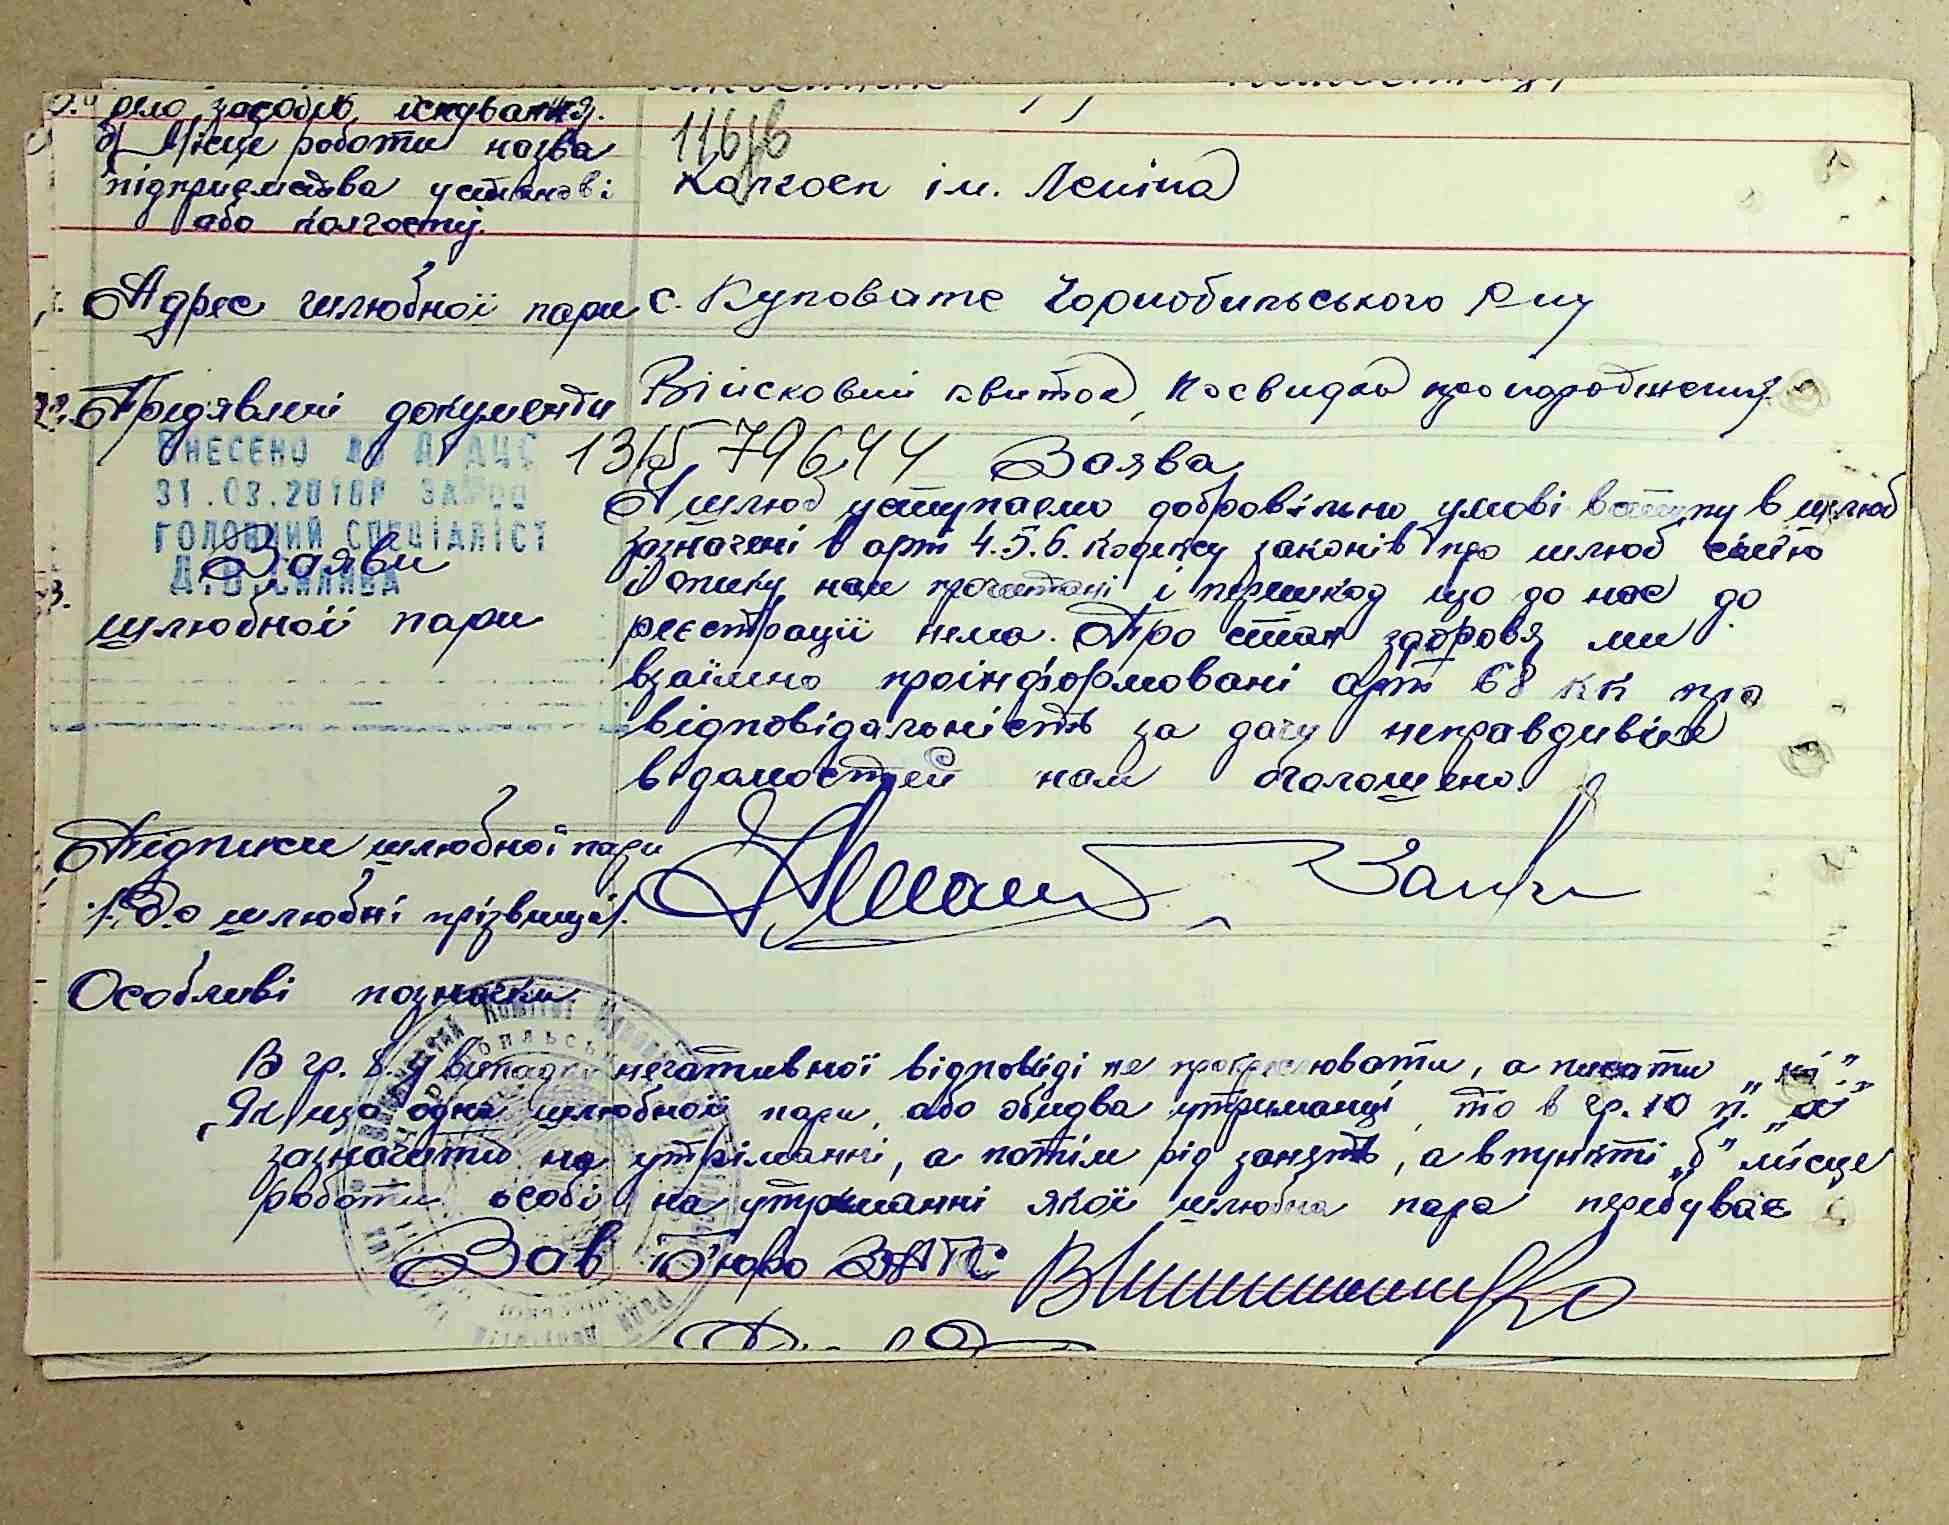 дело засобів існування.
б) Місце роботи назва
підприємства установі
або колгоспу.
116/в
Колгосп ім. Леніна
Адрес шлюбної пари с. Куповате Чорнобильського р-ну
Предявлені документи
Військовий квиток, Посвидка про народження
ВНЕСЕНО ДО ДРАЦС
31.03.2010Р
ГОЛОВНИЙ СПЕЦІАЛІСТ
13/5 79644 Заява
А шлюб уступаємо добровільно умові вступу в шлюб
зазначені в арт 4.5.6. кодексу законів про шлюб сім'ю
і опіку нам прочитані і перешкод що до нас до
реєстрації нема. Про стан здоровя ми
взаїмно проінформовані арт 68 КК про
відповідальність за дачу неправдивіх
відомостей нам оголошено.
Заяви
шлюбної пари
Підписи шлюбної пари
1. До шлюбні прізвища.
Особливі позначки
В гр. 8. у випадку негативної відповіді не прокреслювати, а писати „ні"
Якщо одне шлюбної пари, або обидва утриманці, то в гр. 10 п. „а"
зазначати на утріманні, а потім рід занять, а в пункті „б" місце
роботи особі на утриманні якої шлюбна пара перебуває
Зав Бюро ЗАГС